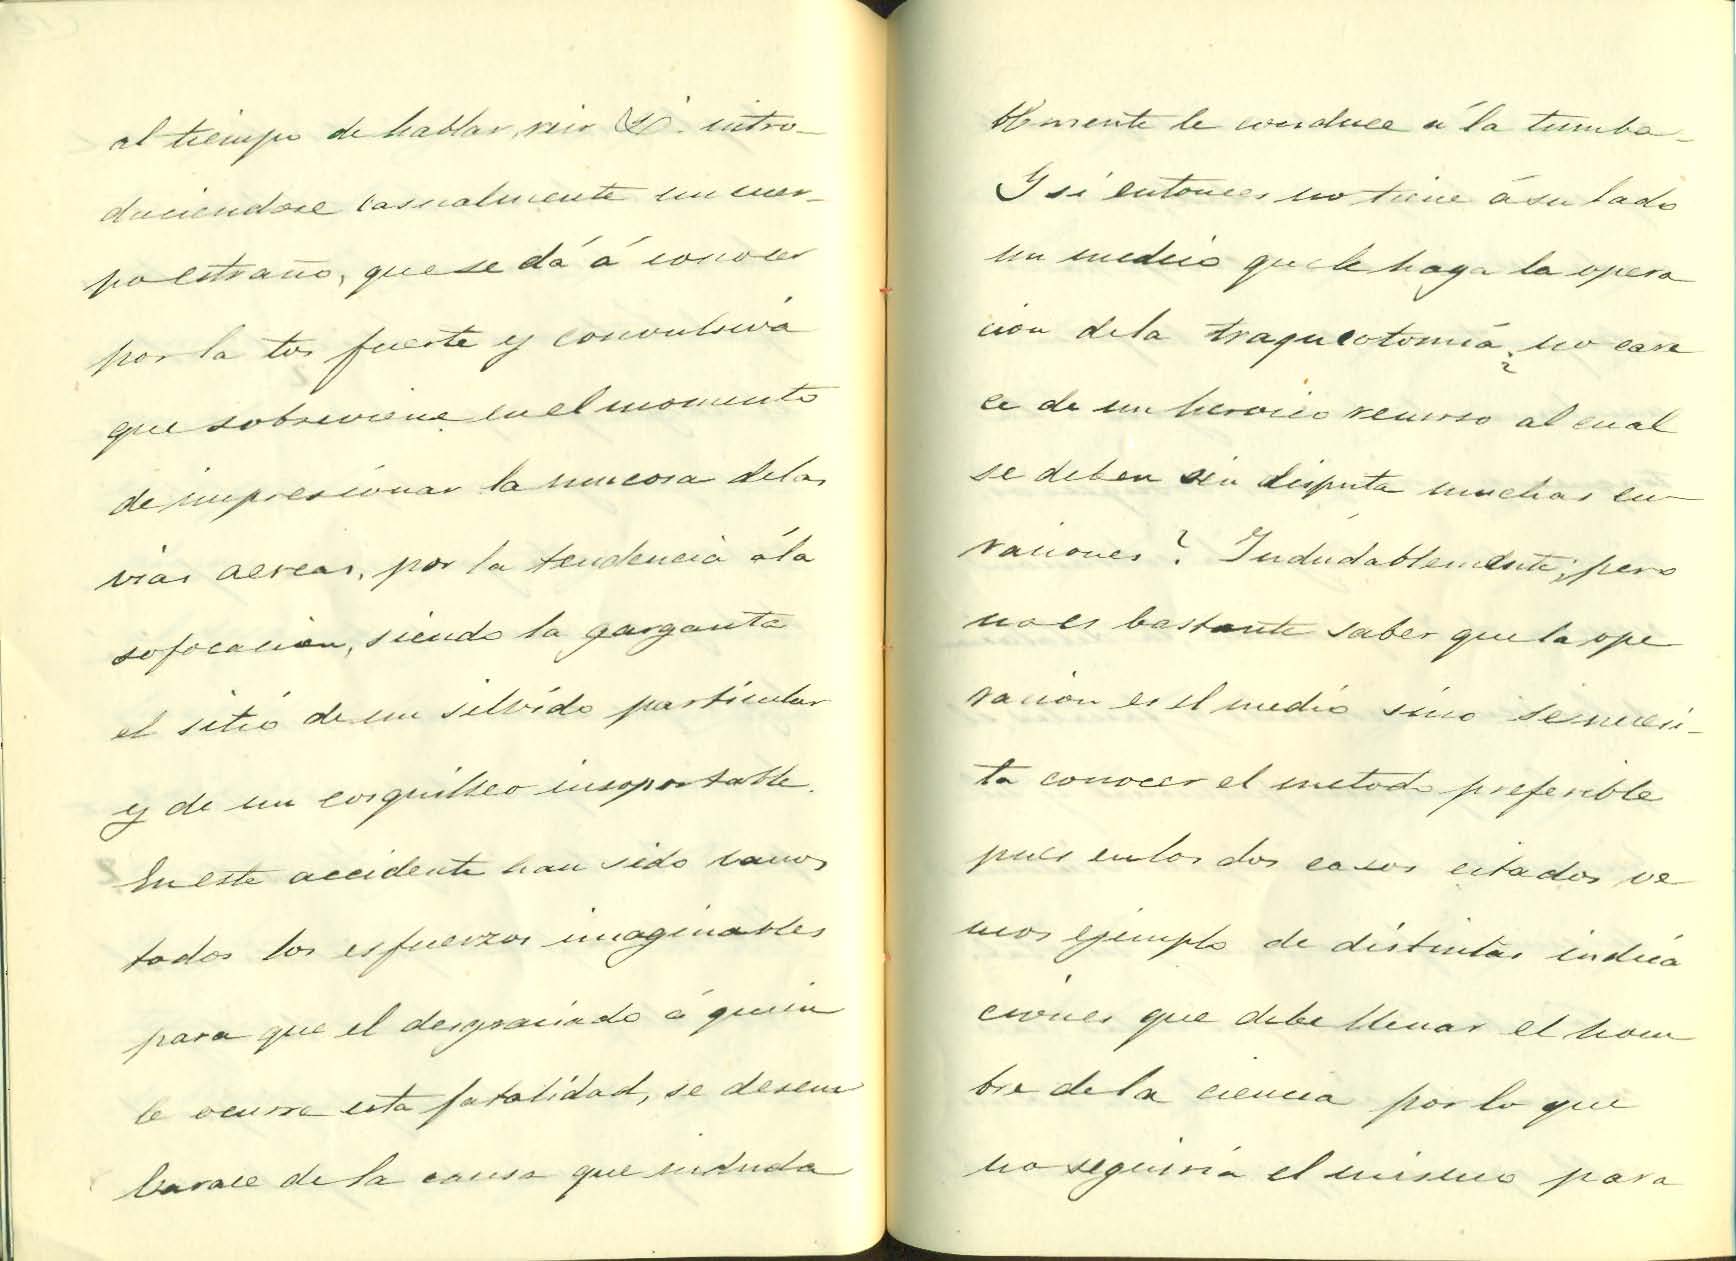 al tiempo de hablar, reir &. intro-
duciendose casualmente un cuer-
po estraño, que se dá á conocer
por la tos fuerte y convulsiva
que sobreviene en el momento
de impresionar la mucosa delas
vias aereas, por la tendencia á la
sofocacion, siendo la garganta
el sitio de un silvido particular
y de un cosquilleo insoportable.
En este accidente han sido vanos
todos los esfuerzos imaginables
para que el desgraciado á quien
le ocurre esta fatalidad, se desem
barace de la causa que induda
blemente le conduce á la tumba-
Y si entonces no tiene á su lado
un medico que le haga la opera
cion dela traqueotomía, no care
ce de un heroico recurso al cual
se deben sin disputa muchas cu-
raciones? Indudablemente; pero
no es bastante saber que la ope
racion es el medio sino se necesi-
ta conocer el metodo preferible
pues en los dos casos citados ve
mos ejemplo de distintas indica
ciones que debe llenar el hom
bre de la ciencia por lo que
no seguiria el mismo para